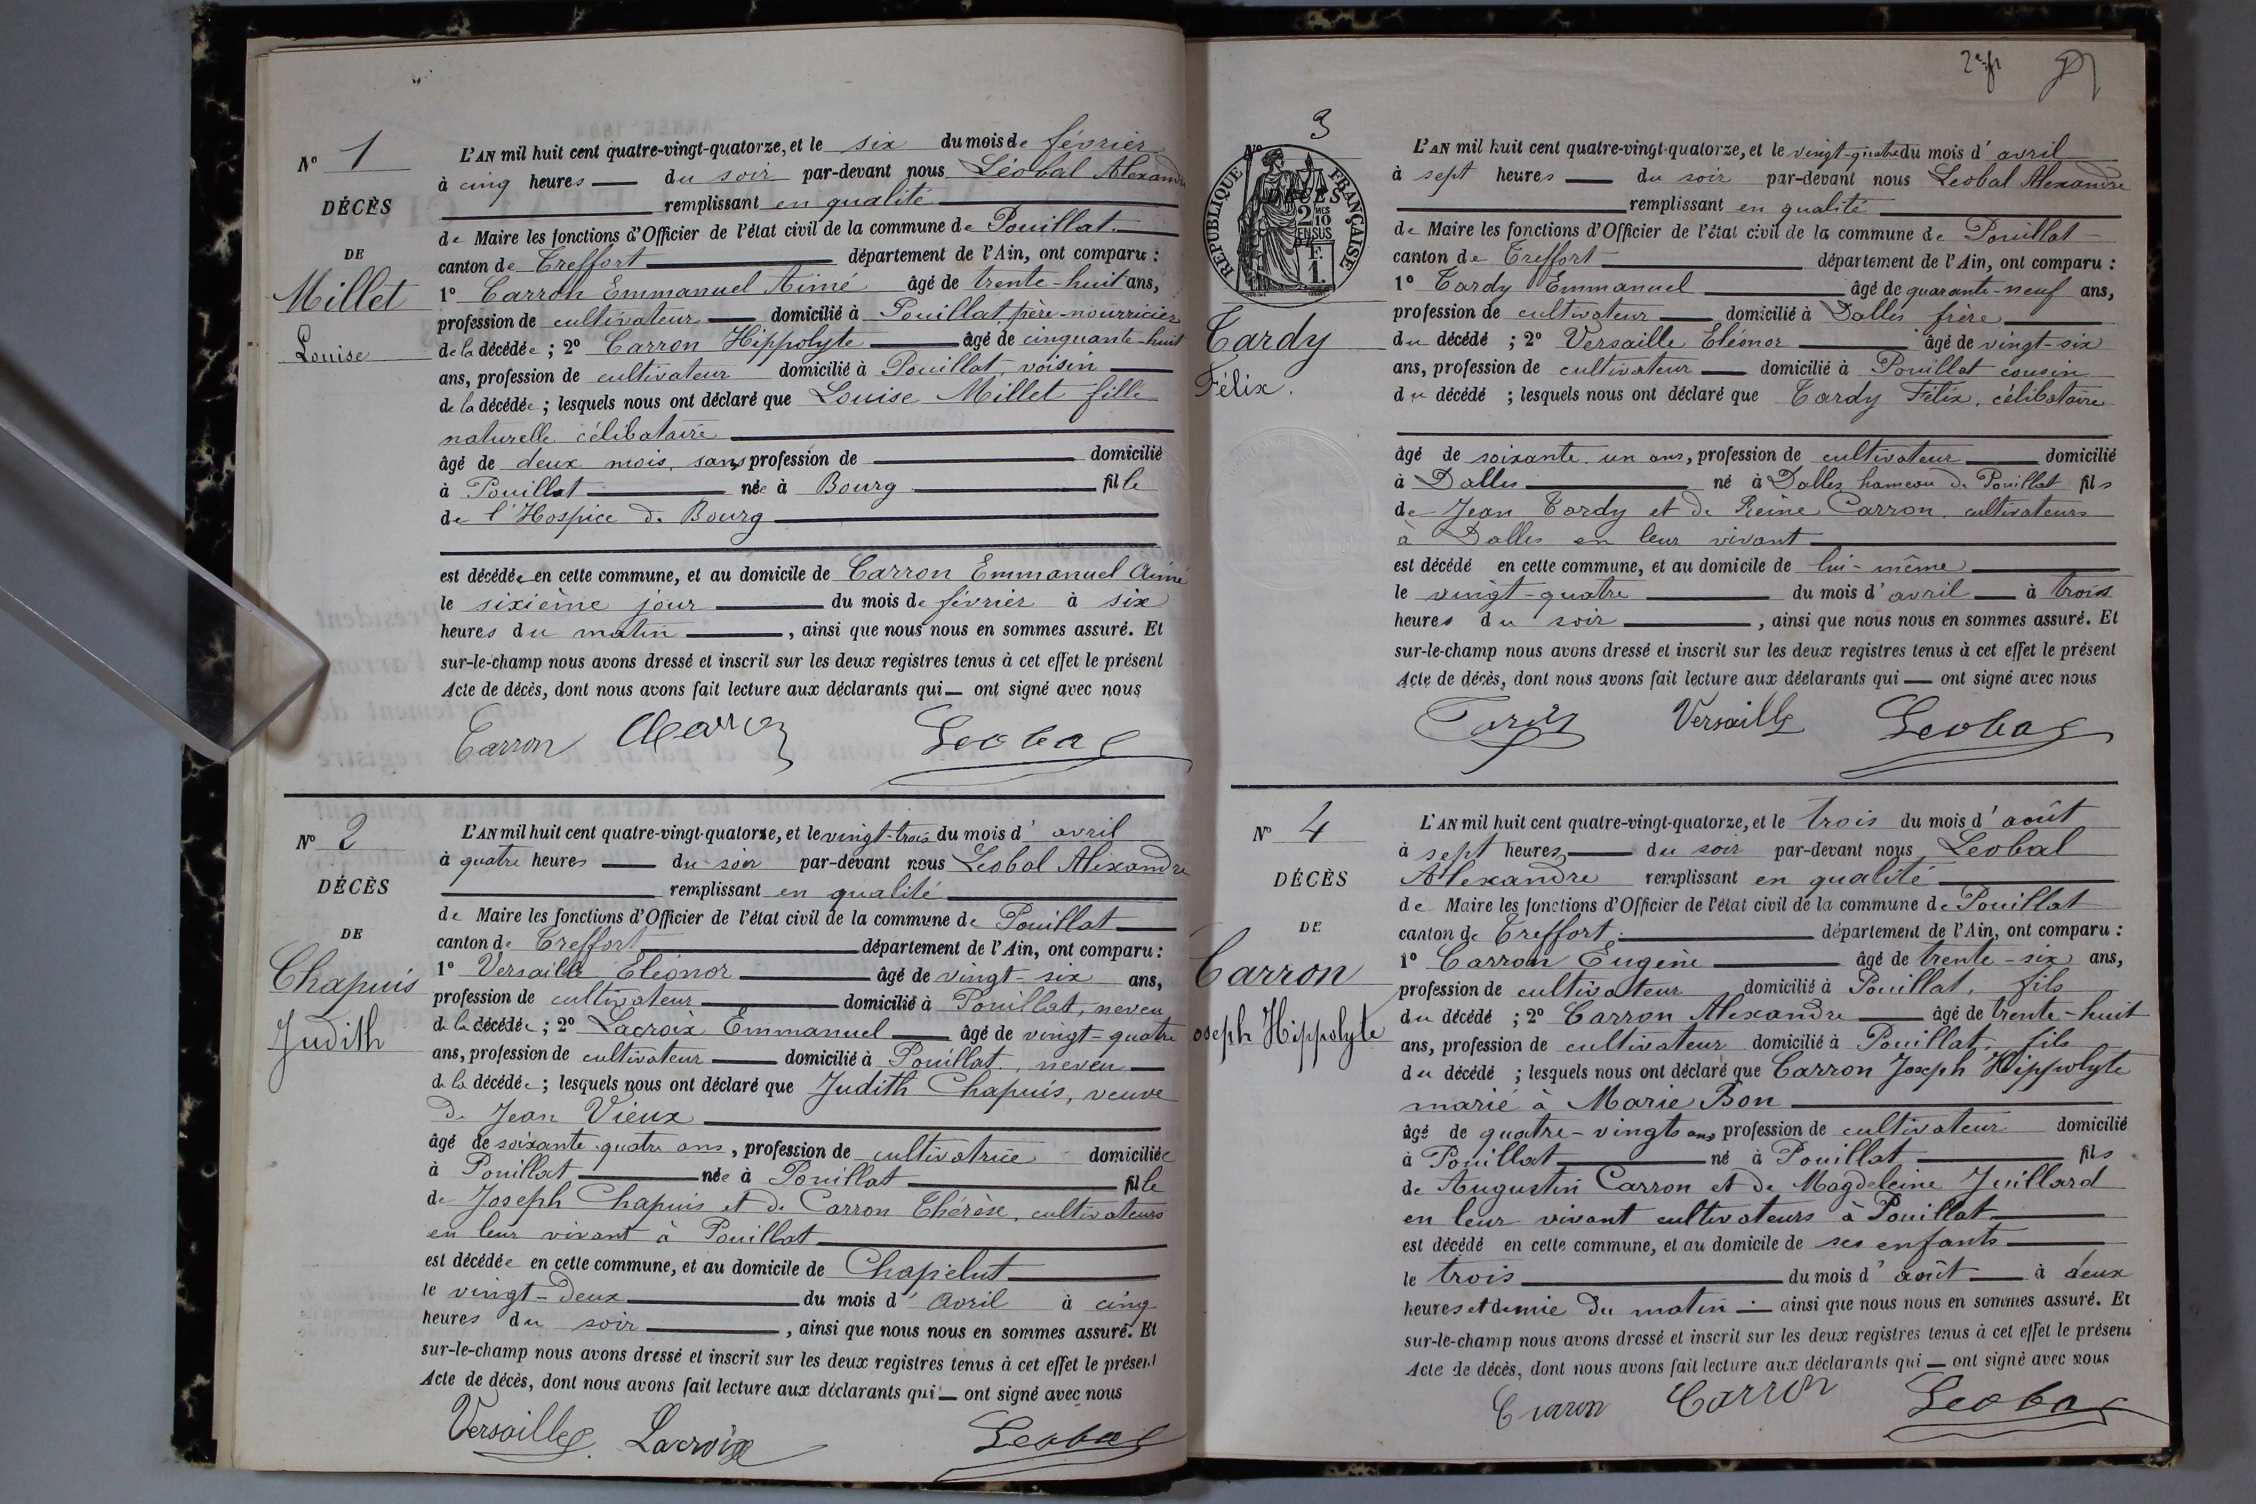 N° 1
DÉCÈS
DE
Millet
Louise
L'AN mil huit cent quatre-vingt-quatorze, et le six du mois de février
à cinq heures du soir par-devant nous Léobal Alexandre
remplissant en qualité
de Maire les fonctions d'Officier de l'état civil de la commune de Pouillat
canton de Treffort département de l'Ain, ont comparu :
1° Carron Emmanuel Aimé âgé de trente-huit ans,
profession de cultivateur domicilié à Pouillat père-nourricier
de la décédée ; 2° Carron Hippolyte âgé de cinquante-huit
ans, profession de cultivateur domicilié à Pouillat, voisin
de la décédée ; lesquels nous ont déclaré que Louise Millet fille
naturelle célibataire
âgé de deux mois, sans profession de domicilié
à Pouillat née à Bourg fille
de l'Hospice de Bourg
est décédée en cette commune, et au domicile de Carron Emmanuel Aimé
le sixième jour du mois de février à six
heures du matin , ainsi que nous nous en sommes assuré. Et
sur-le-champ nous avons dressé et inscrit sur les deux registres tenus à cet effet le présent
Acte de décès, dont nous avons fait lecture aux déclarants qui ont signé avec nous
Carron Leobal
N° 2
DÉCÈS
DE
Chapuis
Judith
L'AN mil huit cent quatre-vingt-quatorze, et le vingt-trois du mois d' avril
à quatre heures du soir par-devant nous Leobal Alexandre
remplissant en qualité
de Maire les fonctions d'Officier de l'état civil de la commune de Pouillat
canton de Treffort département de l'Ain, ont comparu :
1° Versaille Eléonor âgé de vingt-six ans,
profession de cultivateur domicilié à Pouillat, neveu
de la décédée ; 2° Lacroix Emmanuel âgé de vingt-quatre
ans, profession de cultivateur domicilié à Pouillat, neveu
de la décédée ; lesquels nous ont déclaré que Judith Chapuis, veuve
de Jean Vieux
âgé de soixante-quatre ans, profession de cultivatrice domiciliée
à Pouillat née à Pouillat fille
de Joseph Chapuis et de Carron Thérèse, cultivateurs
en leur vivant à Pouillat
est décédée en cette commune, et au domicile de Chapelut
le vingt-deux du mois d' avril à cinq
heures du soir , ainsi que nous nous en sommes assuré. Et
sur-le-champ nous avons dressé et inscrit sur les deux registres tenus à cet effet le présent
Acte de décès, dont nous avons fait lecture aux déclarants qui ont signé avec nous
Versaille Lacroix Leobal
3
RÉPUBLIQUE FRANÇAISE
2 MES
10
EN SUS
1 F.
Tardy
Félix.
L'AN mil huit cent quatre-vingt-quatorze, et le vingt-quatre du mois d' avril
à sept heures du soir par-devant nous Leobal Alexandre
remplissant en qualité
de Maire les fonctions d'Officier de l'état civil de la commune de Pouillat
canton de Treffort département de l'Ain, ont comparu :
1° Tardy Emmanuel âgé de quarante-neuf ans,
profession de cultivateur domicilié à Dalles frère
du décédé ; 2° Versaille Eléonor âgé de vingt-six
ans, profession de cultivateur domicilié à Pouillat cousin
du décédé ; lesquels nous ont déclaré que Tardy Félix, célibataire
âgé de soixante un ans, profession de cultivateur domicilié
à Dalles né à Dalles hameau de Pouillat fils
de Jean Tardy et de Reine Carron, cultivateurs
à Dalles en leur vivant
est décédé en cette commune, et au domicile de lui-même
le vingt-quatre du mois d' avril à trois
heures du soir , ainsi que nous nous en sommes assuré. Et
sur-le-champ nous avons dressé et inscrit sur les deux registres tenus à cet effet le présent
Acte de décès, dont nous avons fait lecture aux déclarants qui ont signé avec nous
Tardy Versaille Leobal
N° 4
DÉCÈS
DE
Carron
oseph Hippolyte
L'AN mil huit cent quatre-vingt-quatorze, et le trois du mois d' août
à sept heures du soir par-devant nous Leobal
Alexandre remplissant en qualité
de Maire les fonctions d'Officier de l'état civil de la commune de Pouillat
canton de Treffort département de l'Ain, ont comparu :
1° Carron Eugène âgé de trente-six ans,
profession de cultivateur domicilié à Pouillat, fils
du décédé ; 2° Carron Alexandre âgé de trente-huit
ans, profession de cultivateur domicilié à Pouillat, fils
du décédé ; lesquels nous ont déclaré que Carron Joseph Hippolyte
marié à Marie Bon
âgé de quatre-vingts ans profession de cultivateur domicilié
à Pouillat né à Pouillat fils
de Augustin Carron et de Magdeleine Juillard
en leur vivant cultivateurs à Pouillat
est décédé en cette commune, et au domicile de ses enfants
le trois du mois d' août à deux
heures et demie du matin ainsi que nous nous en sommes assuré. Et
sur-le-champ nous avons dressé et inscrit sur les deux registres tenus à cet effet le présent
Acte de décès, dont nous avons fait lecture aux déclarants qui ont signé avec nous
Carron Carron Leobal